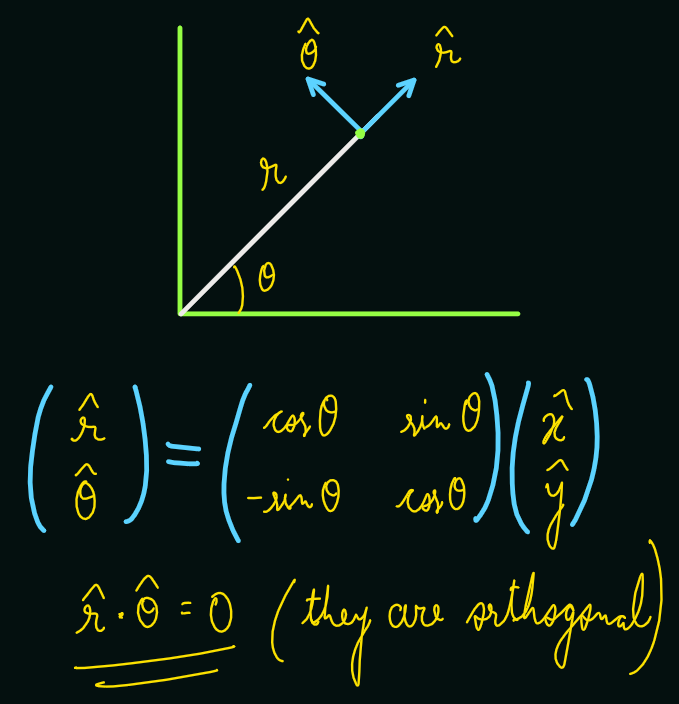 θ̂ r̂
r
θ
(r̂ θ̂) = (cosθ sinθ -sinθ cosθ) (x̂ ŷ)
r̂ · θ̂ = 0 (they are orthogonal)